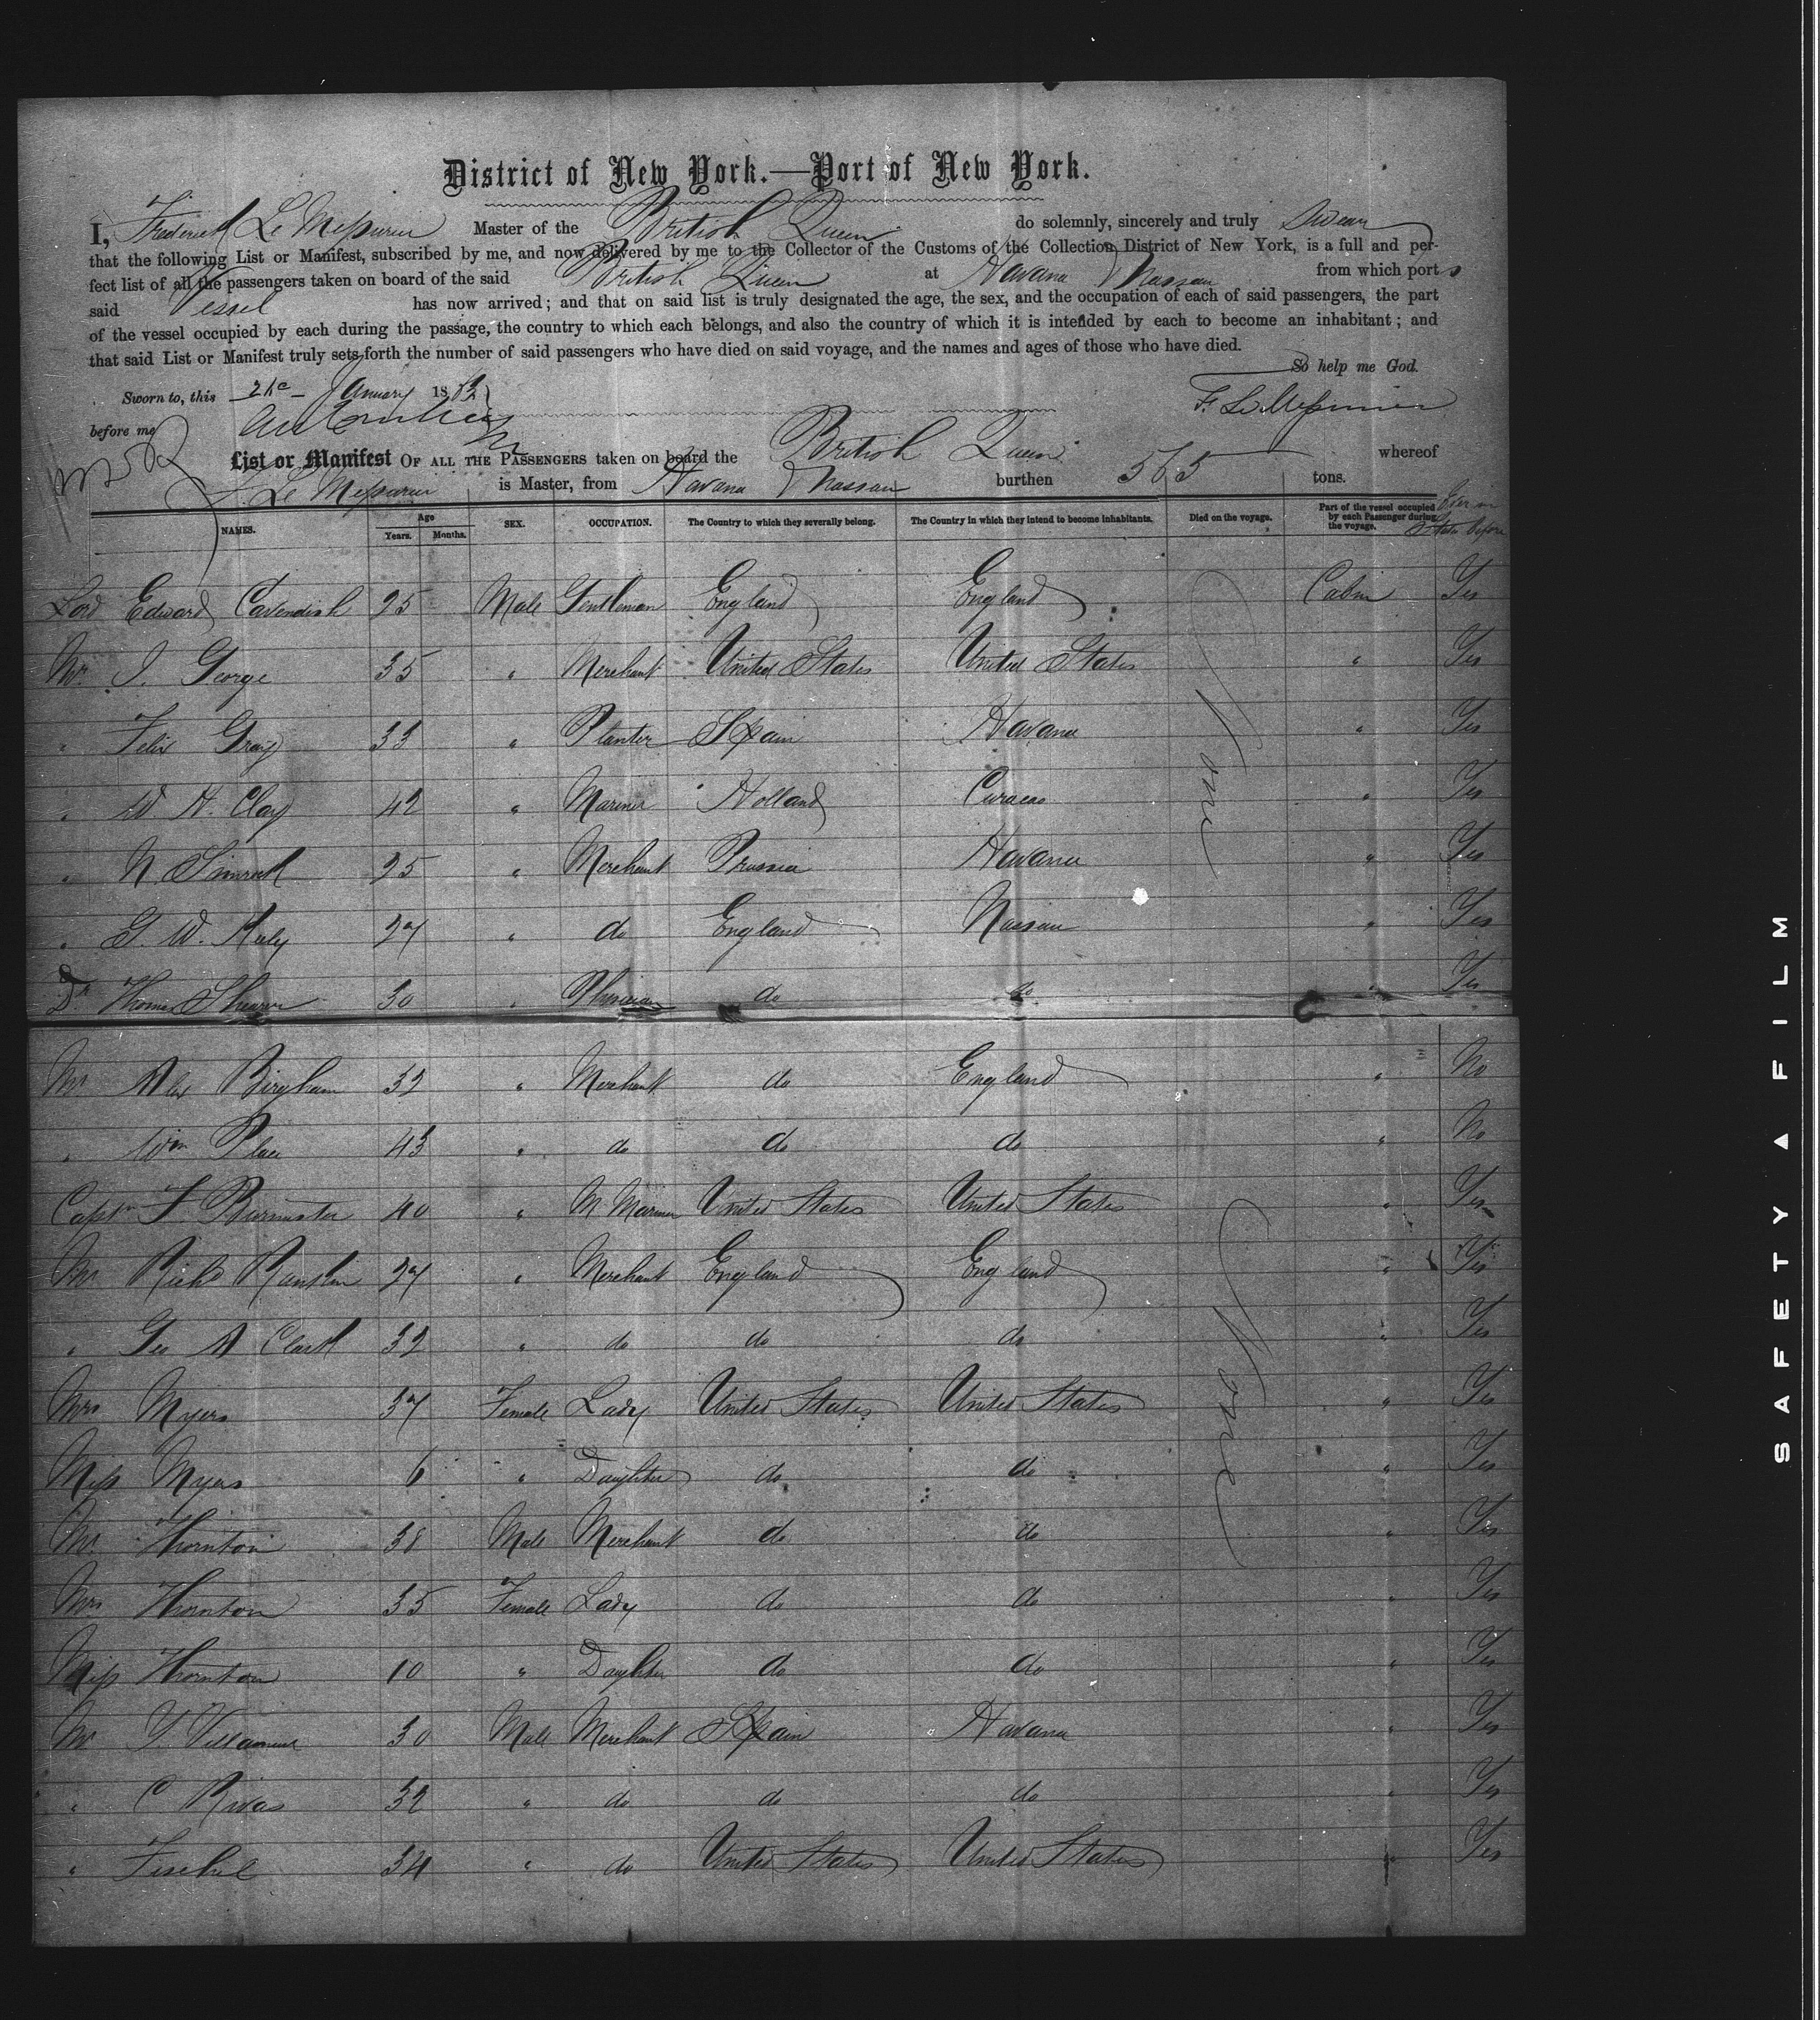 District of New York.—Port of New York.
I, Frederick Le Messurier Master of the British Queen do solemnly, sincerely and truly swear
that the following List or Manifest, subscribed by me, and now delivered by me to the Collector of the Customs of the Collection District of New York, is a full and per-
fect list of all the passengers taken on board of the said British Queen at Havana & Nassau from which ports
said Vessel has now arrived; and that on said list is truly designated the age, the sex, and the occupation of each of said passengers, the part
of the vessel occupied by each during the passage, the country to which each belongs, and also the country of which it is intended by each to become an inhabitant; and
that said List or Manifest truly sets forth the number of said passengers who have died on said voyage, and the names and ages of those who have died.
So help me God.
Sworn to, this January 18
F. Le Messurier
before me
List or Manifest OF ALL THE PASSENGERS taken on board the British Queen whereof
F. Le Messurier is Master, from Havana & Nassau burthen 563 tons.
NAMES. Age Years. Months. SEX. OCCUPATION. The Country to which they severally belong. The Country in which they intend to become inhabitants. Died on the voyage. Part of the vessel occupied by each Passenger during the voyage. before
Lord Edward Cavendish 25 Male Gentleman England England Cabin Yes
Mr. J. George 35 " Merchant United States United States " Yes
" Felix 33 " Planter Spain Havana " Yes
" W. H. Clay 42 " Mariner Holland Curacao " Yes
" N. Simrock 25 " Merchant Prussia Havana " Yes
" G. W. 27 " do England Nassau " Yes
Dr Thomas Shearer 30 " Physician do do " Yes
None
Mr Alex Bingham 32 " Merchant do England " No
" Wm Place 43 " do do do " No
Captn F. Burmister 40 " M Mariner United States United States " Yes
Mr Richd 27 " Merchant England England " Yes
" Geo A Clark 32 " do do do " Yes
Mrs Myers 37 Female Lady United States United States " Yes
Miss Myers 6 " Daughter do do " Yes
Mr Thornton 38 Male Merchant do do " Yes
Mrs Thornton 35 Female Lady do do " Yes
Miss Thornton 10 " Daughter do do " Yes
Mr 30 Male Merchant Spain Havana " Yes
" C Rivas 32 " do do do " Yes
" 34 " do United States United States " Yes
None
SAFETY A FILM